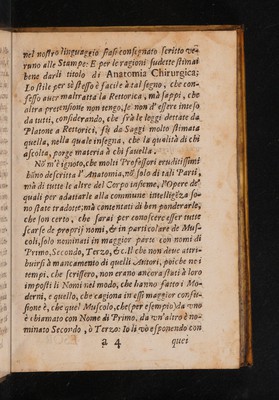 nel nostro linguaggio stasi consegnato scritto ve-
runo alle Stampe: E per le ragioni sudette stimai
bene darli titolo di Anatomia Chirurgica;
Lo stile per sè stesso è facile à tal segno, che con-
fesso aver maltratta la Rettorica, mà sappi, che
altra pretensione non tengo, se non d'essere inteso
da tutti, considerando, che frà le leggi dettate da
Platone a Rettorici, fù da Saggi molto stimata
quella, nella quale insegna, che la qualità di chi
ascolta, porge materia à chi favella.
Nō m'è ignoto, che molti Professori eruditissimi
hāno descritta l'Anatomia, nō solo di tali Parti,
mà di tutte le altre del Corpo insieme, l'Opere de'
quali per adattarle alla commune intelligēza so-
no state tradotte; mà contentati di ben ponderarle,
che son certo, che sarai per conoscere esser tutte
scarse de proprij nomi, & in particolare de Mus-
coli, solo nominati in maggior parte con nomi di
Primo, Secondo, Terzo, &c. Il che non deve attri-
buirsi à mancamento di quelli Autori, poiche ne i
tempi, che scrissero, non erano ancora stati à loro
imposti li Nomi nel modo, che hanno fatto i Mo-
derni, e quello, che cagiona in esse maggior confu-
sione è, che quel Muscolo, che (per esempio) da uno
è chiamato con Nome di Primo, da un'altro è no-
minato Secondo, ò Terzo: Io li vò esponendo con
a 4 quei